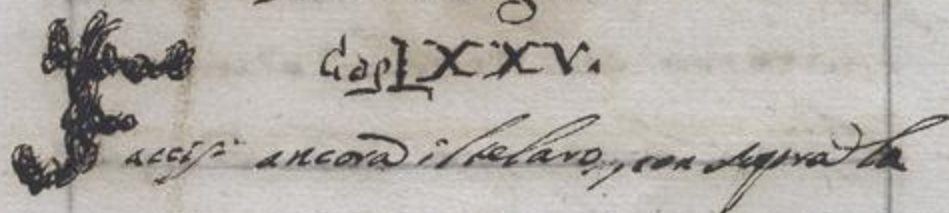 Cap LXXV.
Faccisi ancora il telaro, con sopra la